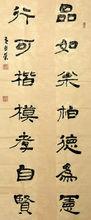 品如枀柏德為憲
行可楷模孝自賢